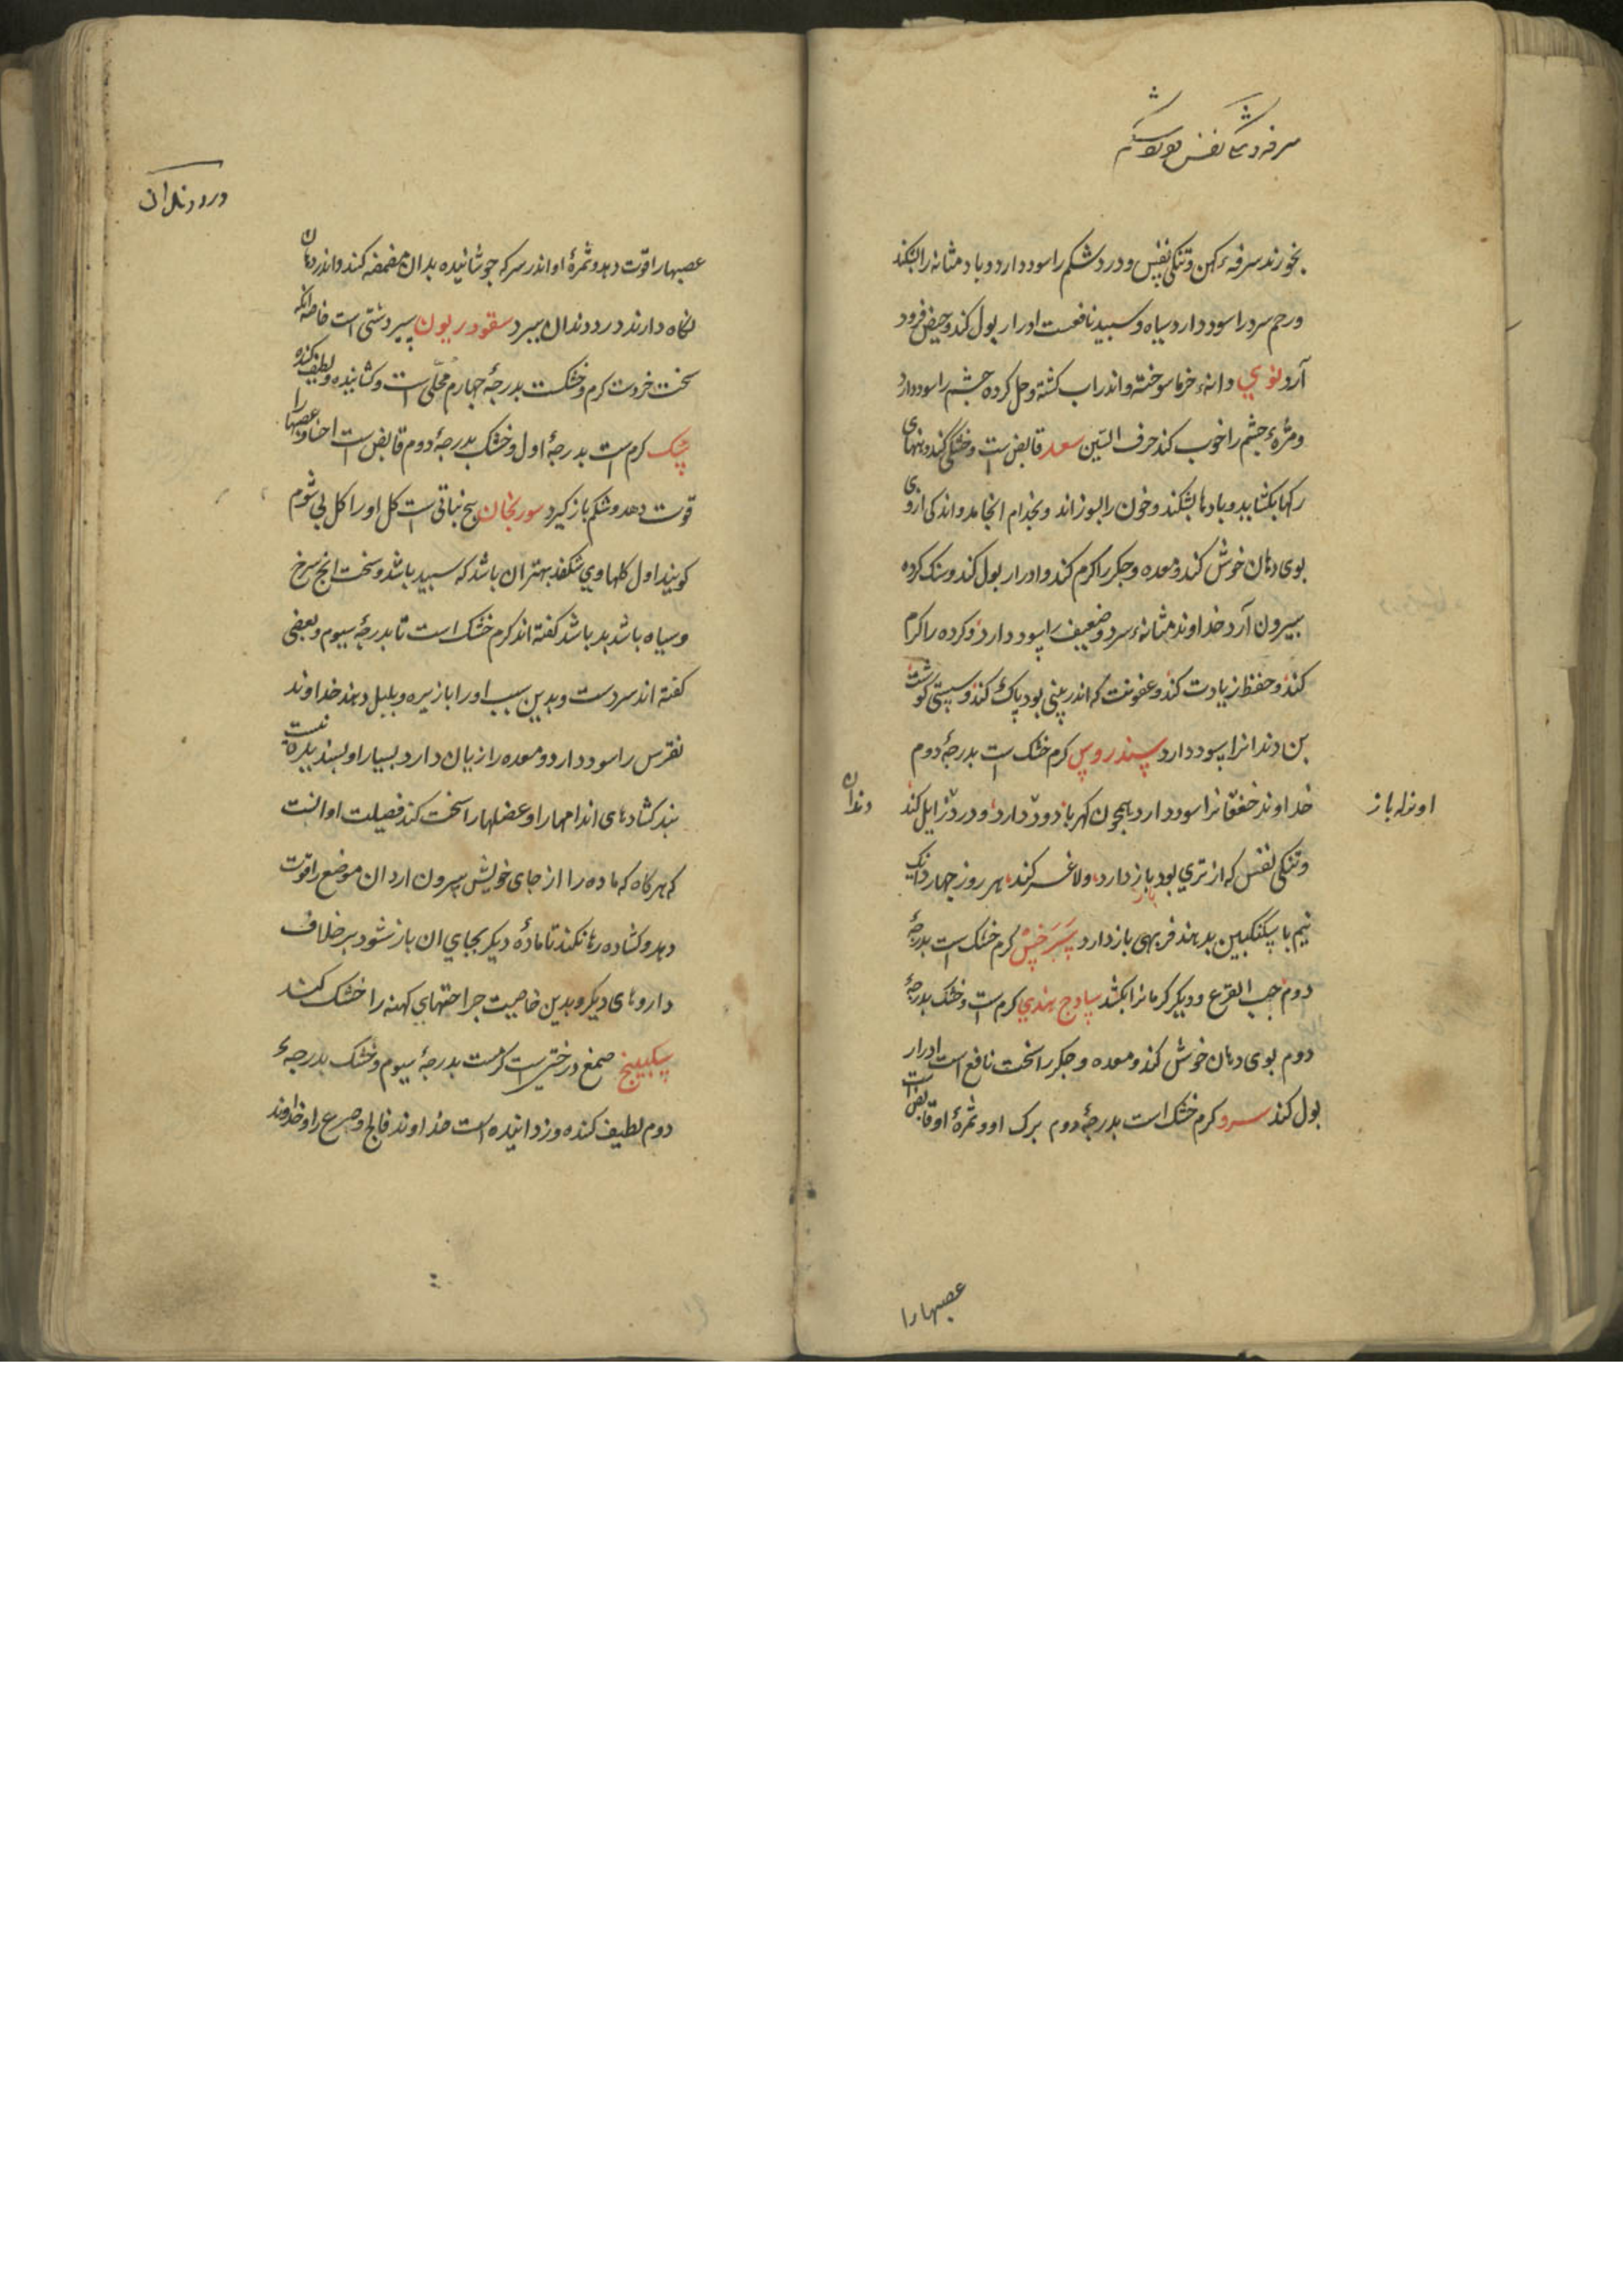 سرفه و تنگی نفس درد شکم
بخورند سرفهٔ کهن و تنکی نفس و درد شکم را سود دارد و باد مثانه را بشکند
و رحم سرد را سود دارد سیاه و سپید نافعست ادرار بول کند و حیض فرود
آرد نوی دانهٔ خرما سوخته و اندر اب کشته و حل کرده چشم را سود دارد
و مژهٔ چشم را خوب کند حرف السّین سعد قابض است و خشکی کند دهنهای
رکها بکشاید و بادها بشکند و خون را بسوزاند و بجذام انجامد و اندکی ازوی
بوی دهان خوش کند و معده و جکر را کرم کند و ادرار بول کند و سنک کرده
بیرون آرد خداوند مثانهٔ سرد و ضعیف را سود دارد و کرده را کرم
کند و حفظ زیادت کند و عفونت که اندر بینی بود پاک کند و سستی کوشت
بن دندانرا سود دارد سندروس کرم خشک است بدرجهٔ دوم
خداوند خفقانرا سود دارد همچون کهربا و درد دندان زایل کند
او نزله باز
و تنکی نفس که از تری بود باز دارد و لاغر کند هر روز چهار دانک
نیم با سکنکبین بدهند فربهی باز دارد سرخس کرم خشک است بدرجهٔ
دوم حب القرع و دیکر کرمانرا بکشد سادج هندی کرم است و خشک بدرجهٔ
دوم بوی دهان خوش کند و معده و جکر را سخت نافع است ادرار
بول کند سرو کرم خشک است بدرجهٔ دوم برک او و ثمرهٔ او قابض است
عصبها را
درد دندان
عصبها را قوّت دهد و ثمرهٔ او اندر سرکه جوشانیده بدان مضمضه کنند و اندر دهان
نکاه دارند درد دندان ببرد سقوردیون سیر دشتی است خاصه انکه
سخت خردست کرم و خشکست بدرجهٔ چهارم محلّل است و کشاینده و لطیف کننده
سک کرم است بدرجهٔ اول و خشک بدرجهٔ دوم قابض است احشا و عصبها را
قوّت دهد و شکم باز کیرد سورنجان بیخ نباتی است کل او را کل
کویند اول کلها وی شکفد بهتر ان باشد که سپید باشد و سخت انچ سرخ
و سیاه باشد بد باشد کفته اند کرم خشک است تا بدرجهٔ سیوم و بعضی
کفته اند سردست و بدین سبب او را با زیره و پلپل دهند خداوند
نقرس را سود دارد و معده را زیان دارد بسیار او بسندیده نیست
بند کشادهای اندامها را و عضلها را سخت کند فضیلت او انست
که هرکاه که ماده را از جای خویش بیرون ارد ان موضع را قوّت
دهد و کشاده رها نکند تا مادهٔ دیکر بجای ان باز نشود بر خلاف
داروهای دیکر و بدین خاصیت جراحتهای کهنه را خشک کند
سکبینج صمغ درختی است کرمست بدرجهٔ سیوم و خشک بدرجهٔ
دوم لطیف کننده و زداینده است خداوند فالج و صرع را و خداوند